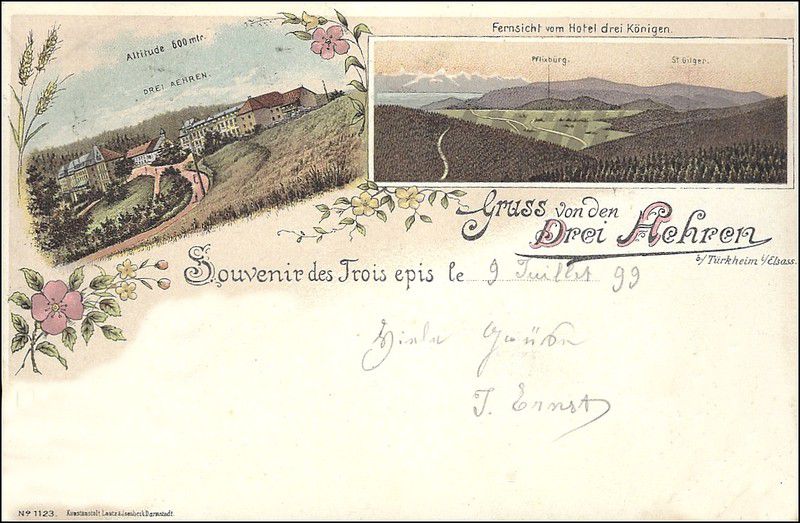 Fernsicht vom Hotel drei Königen.
Altitude 600 mtr.
DREI AEHREN.
Pflixburg.
St Gilger.
Gruss von den
Drei Aehren
b/ Türkheim i/Elsass.
Souvenir des Trois epis le 9 Juillet 99
Viele Grüße
J. Ernst
No 1123. Kunstanstalt Lautz & Jsenbeck Darmstadt.